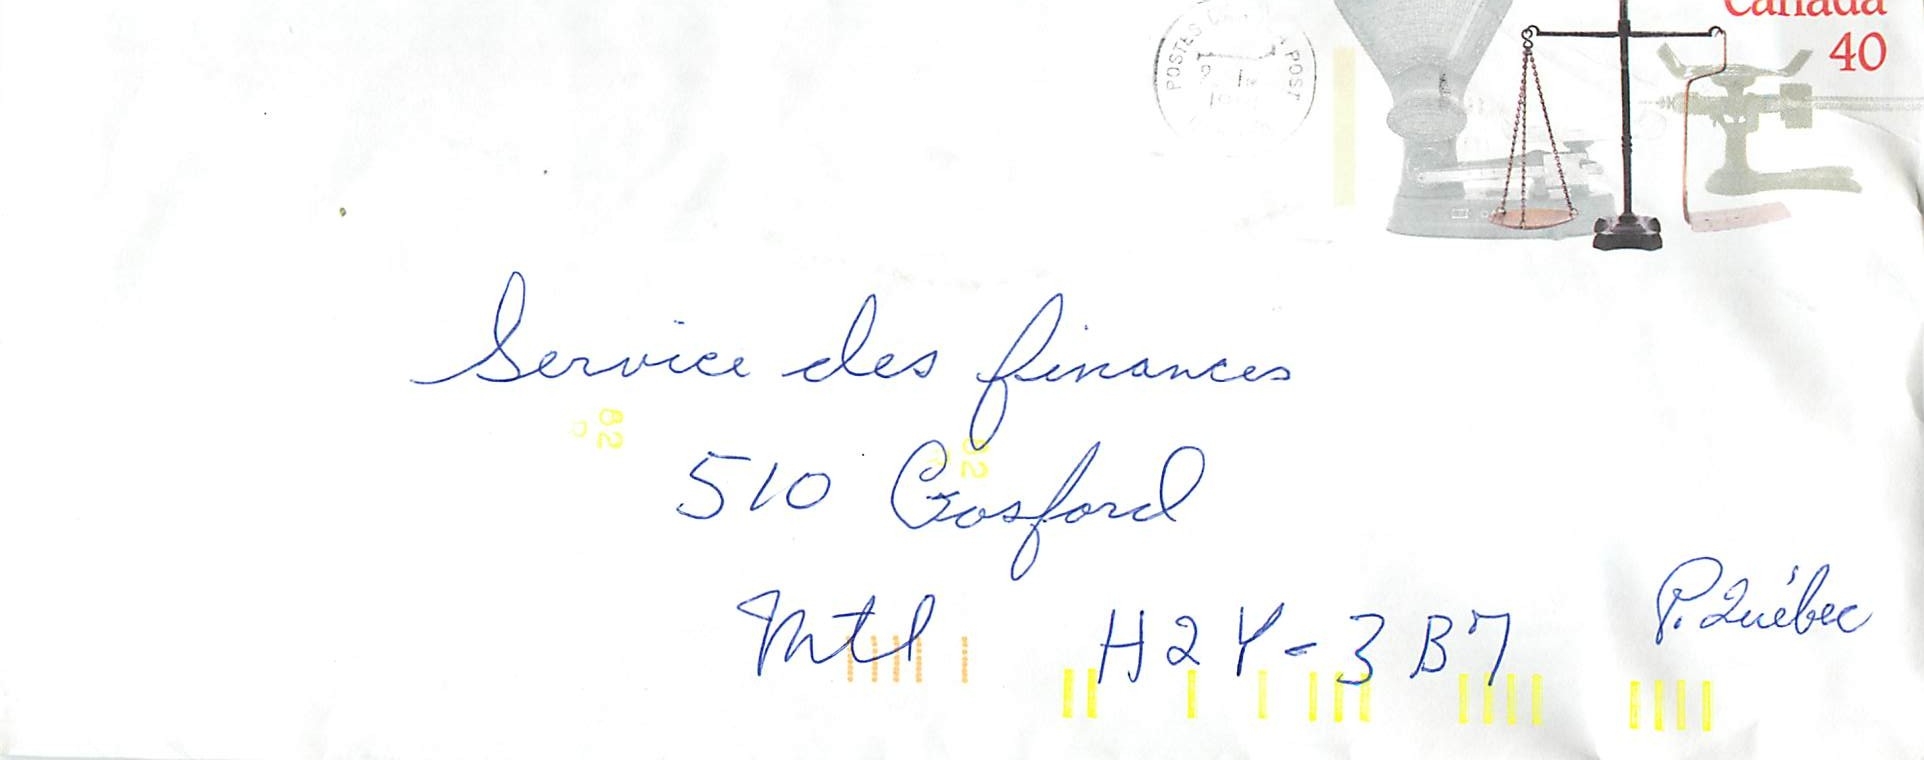 Canada
40
POSTES CANADA POST
Service des finances
82
82
510 Gosford
Mtl H2Y-3B7 P. Québec